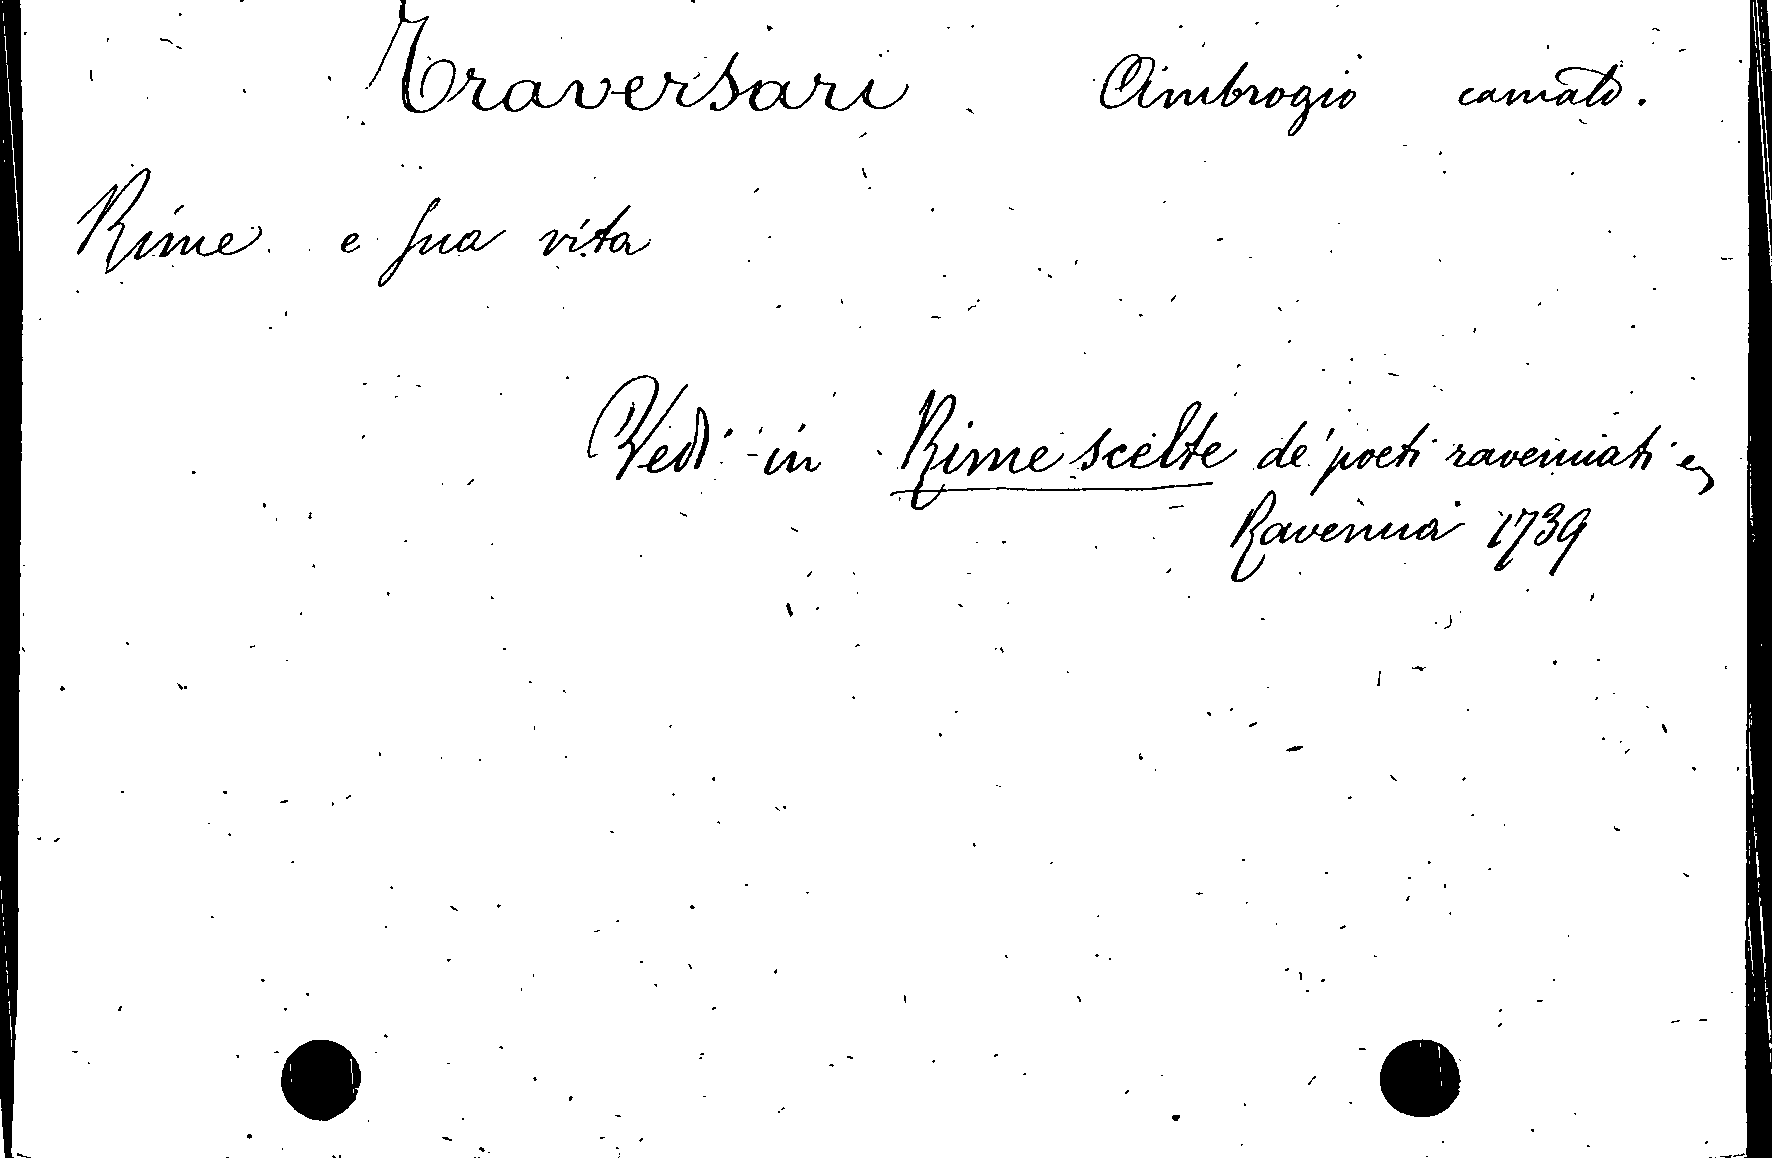 Traversari Ambrogio camald.
Rime e sua vita
Vedi in Rime scelte de' poeti ravennati
Ravenna 1739